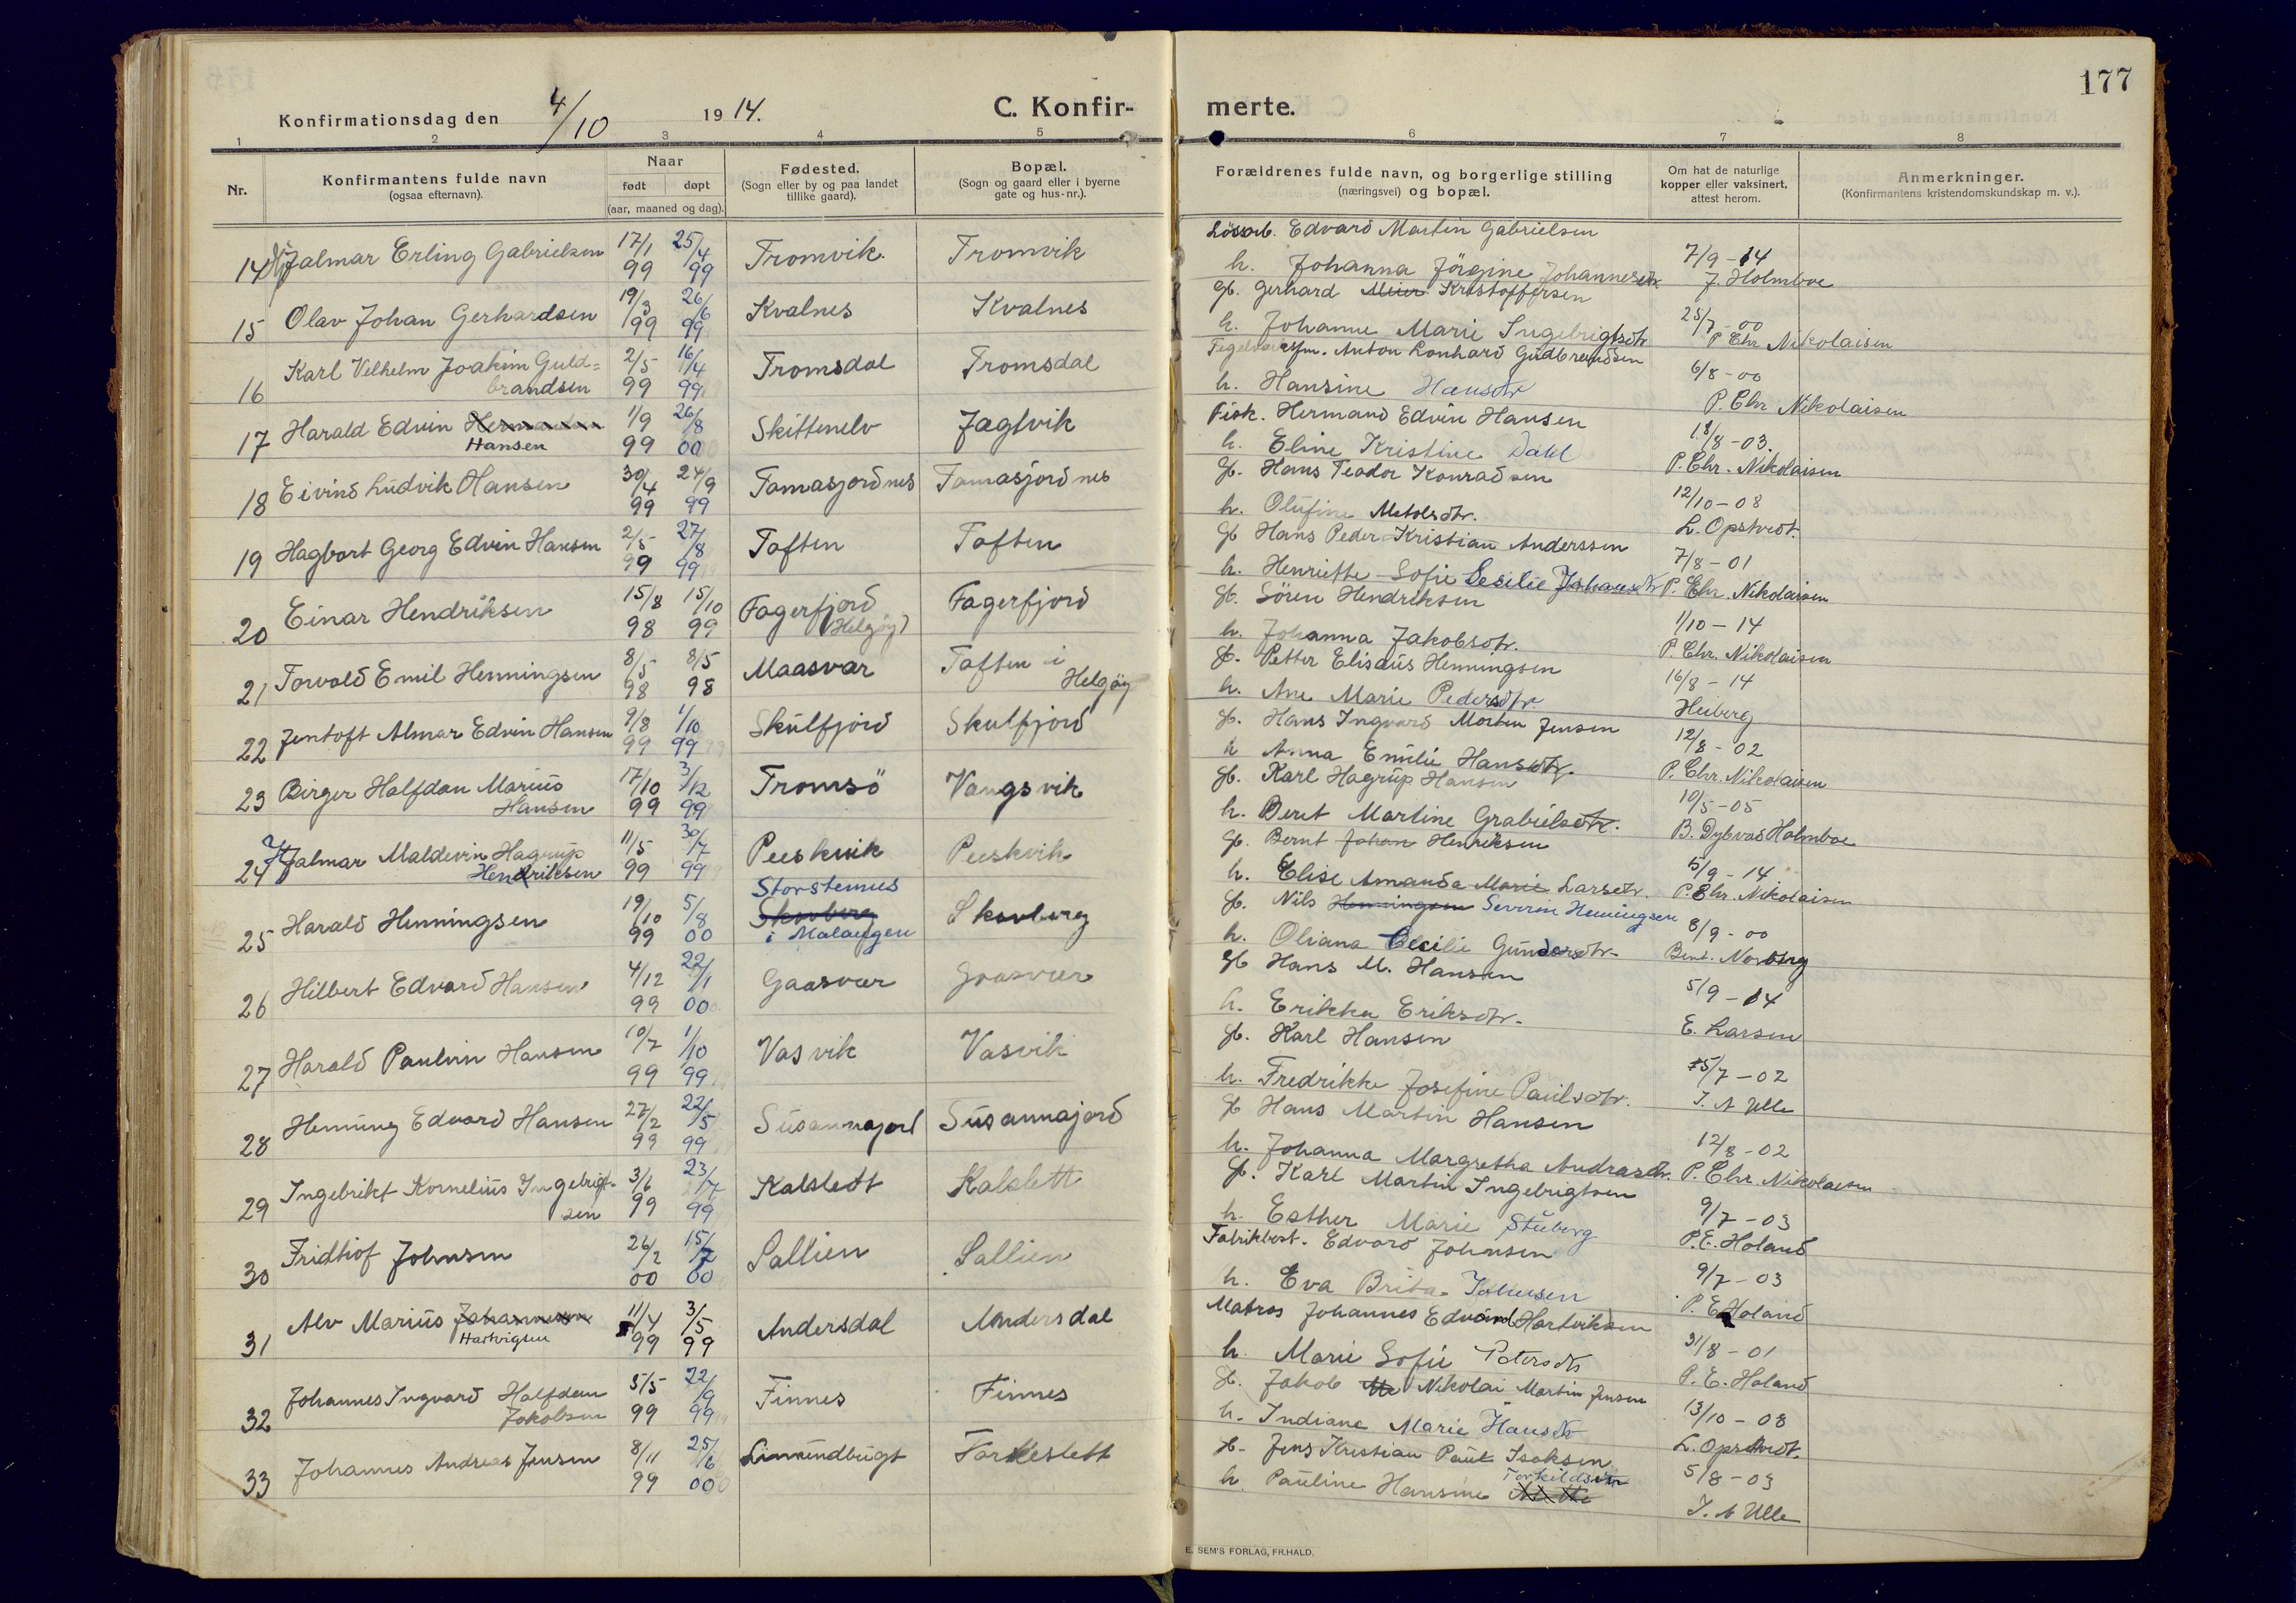 177
Konfirmationsdag den 4/10 1914.
C. Konfir-
merte.
1 2 3 4 5 6 7 8
Nr.
Konfirmantens fulde navn
(ogsaa efternavn).
Naar
født døpt
(aar, maaned og dag).
Fødested.
(Sogn eller by og paa landet
tillike gaard).
Bopæl.
(Sogn og gaard eller i byerne
gate og hus-nr.).
Forældrenes fulde navn, og borgerlige stilling
(næringsvei) og bopæl.
Om hat de naturlige
kopper eller vaksinert,
attest herom.
Anmerkninger.
(Konfirmantens kristendomskundskap m. v.).
14 Hjalmar Erling Gabrielsen 17/1 99 25/4 99 Tromvik. Tromvik
Løsarb. Edvard Martin Gabrielsen
h. Johanna Jörgine Johannesdtr.
7/9-14
J. Holmboe
15 Olav Johan Gerhardsen 19/3 99 26/6 99 Kvalnes Kvalnes
Gb. Gerhard Meier Kristoffersen
h. Johanne Marie Ingebrigtsdtr
25/7-00
P Chr Nikolaisen
16 Karl Vilhelm Joakim Guld=
brandsen 2/5 99 16/4 99 Tromsdal Tromsdal
Teglverksfm. Anton Lonhard Gudbrandsen
h. Hansine Hansdtr
6/8-00
P. Chr Nikolaisen
17 Harald Edvin Hermansen
Hansen 1/9 99 26/8 00 Skittenelv Jægtvik
Fisk. Hermand Edvin Hansen
h. Eline Kristine Dahl
18/8-03.
P. Chr. Nikolaisen
18 Eivind Ludvik Hansen 30/4 99 24/9 99 Tomasjordnes Tomasjordnes
Gb. Hans Teodor Konradsen
h. Olufine
12/10-08
L. Opstvedt.
19 Hagbart Georg Edvin Hansen 2/5 99 27/8 99 Toften Toften
Gb Hans Peder Kristian Anderssen
h. Henriette Sofie Cecilie Johansdtr
7/8-01
P. Chr. Nikolaisen
20 Einar Hendriksen 15/8 98 15/10 99 Fagerfjord
(Helgøy) Fagerfjord
Gb. Sören Hendriksen
h. Johanna Jakobsdtr.
1/10-14
P. Chr. Nikolaisen
21 Torvald Emil Henningsen 8/5 98 8/5 98 Maasvær Toften i
Helgøy
Gb. Petter Elisæus Henningsen
h. Ane Marie Pedersdtr.
16/8-14
Heiberg
22 Jentoft Almar Edvin Hansen 9/8 99 1/10 99 Skulfjord Skulfjord
Gb. Hans Ingvard Morten Jensen
h Anna Emilie Hansdtr.
12/8-02
P. Chr. Nikolaisen
23 Birger Halfdan Marius
Hansen 17/10 99 3/12 99 Tromsö Vangsvik
Gb. Karl Hagrup Hansen
h. Beret Martine Grabielsdtr.
10/5-05
B. Dybvad Holmboe
24 Hjalmar Maldevin Hagrup
Hendriksen 11/5 99 30/7 99 Peeskvik Peeskvik
Gb. Bernt Johan Henriksen
h. Elise Amanda Marie Larsdtr.
5/9-14
P. Chr. Nikolaisen
25 Harald Henningsen 19/10 99 5/8 00 Storstennes
Skovberg
i Malangen Skovberg
Gb. Nils Henningsen Severin Henningsen
h. Oliana Cecilie Gundersdtr.
8/9-00
Bent. Norberg
26 Hilbert Edvard Hansen 4/12 99 22/1 00 Gaasvær Gaasvær
Gb Hans M. Hansen
h. Erikka Eriksdtr.
5/9-14
E. Larsen
27 Harald Paulvin Hansen 10/7 99 1/10 99 Vasvik Vasvik
Gb. Karl Hansen
h. Fredrikke Josefine Paulsdtr.
15/7-02
I. A Ulle
28 Henning Edvard Hansen 27/2 99 22/5 99 Susannajord Susannajord
Gb Hans Martin Hansen
h. Johanna Margretha Andrasdtr.
12/8-02
P. Chr. Nikolaisen
29 Ingebrikt Kornelius Ingebrigt-
sen 3/6 99 23/7 99 Kalslett Kalslett
Gb. Karl Martin Ingebrigtsen
h. Esther Marie Stuberg
9/7-03
P. E. Holand
30 Fridtiof Johnsen 26/2 00 15/7 00 Sallien Sallien
Fabrikbest. Edvard Johnsen
h. Eva Brita Johnsen
9/7-03
P. E Holand
31 Alv Marius Johannesen
Hartvigsen 11/4 99 3/5 99 Andersdal Andersdal
Matros Johannes Edvard Hartviksen
h. Marie Sofie Petersdtr
31/8-01
P. E. Holand
32 Johannes Ingvard Halfdan
Jakobsen 5/5 99 22/9 99 Finnes Finnes
Gb. Jakob Nikolai Martin Jensen
h. Indiana Marie Hansdtr
13/10-08
L. Opstvedt.
33 Johannes Andreas Jensen 8/11 99 25/6 00 Limundbugt Torkeslett
Gb. Jens Kristian Paul Isaksen
h. Pauline Hansine Torkildsdtr
5/8-03
I. A Ulle
E. SEM'S FORLAG, FR.HALD.